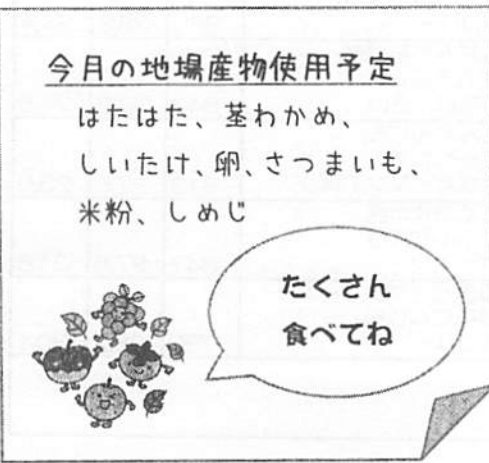 今月の地場産物使用予定
はたはた、茎わかめ、
しいたけ、卵、さつまいも、
米粉、しめじ
たくさん
食べてね